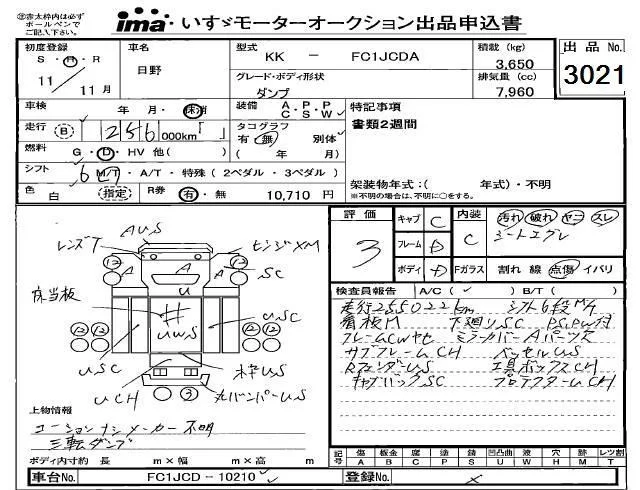 ㊟赤太枠内は必ず
ボールペンで
ご記入下さい。
ima いすゞモーターオークション出品申込書
初度登録
S・H・R
11／11月
車名
日野
型式
KK － FC1JCDA
グレード・ボディ形状
ダンプ
積載 (kg)
3,650
排気量 (cc)
7,960
出品No.
3021
車検 年・月・抹消
走行 (B) 256,000km「 」
燃料 G・D・HV 他( )
シフト 6 M/T・A/T・特殊(2ペダル・3ペダル)
色 白 (指定)
R券 有・無 10,710 円
装備 A・P・P
C・S・W
タコグラフ 有 無 別体
( 年 月)
特記事項
書類2週間
架装物年式:( 年式)・不明
※不明の場合は、不明に○をする。
評価
3
キャブ C
フレーム D
ボディ D
内装 C
Fガラス
汚れ 破れ ヤニ スレ
シートエグレ
割れ 線 点傷 イバリ
検査員報告 A/C( ✓ ) B/T( )
走行255022km シフト6段M/T
看板M 下廻りSC PS,PW付
フレームCWヤセ ミラーカバーAパーツ欠
サブフレームCH ベッセルUS
RフェンダーUS 工具ボックスCH
キャブバックSC プロテクターUCH
レンズT
AUS
ヒンジXM
12
12
A
A
A
SC
U
床当板
UWS
USC
USC
12
12
12
12
枠US
UCH
3
カバンパーUS
上物情報
コーションナシメーカー不明
三転ダンプ
ボディ内寸約 長 m×幅 m×高 m
記号
傷 板金 腐 塗 錆 凹凸曲 液 穴 跡 レツ割
A B C P S U W H M T
車台No.
FC1JCD－10210
登録No.